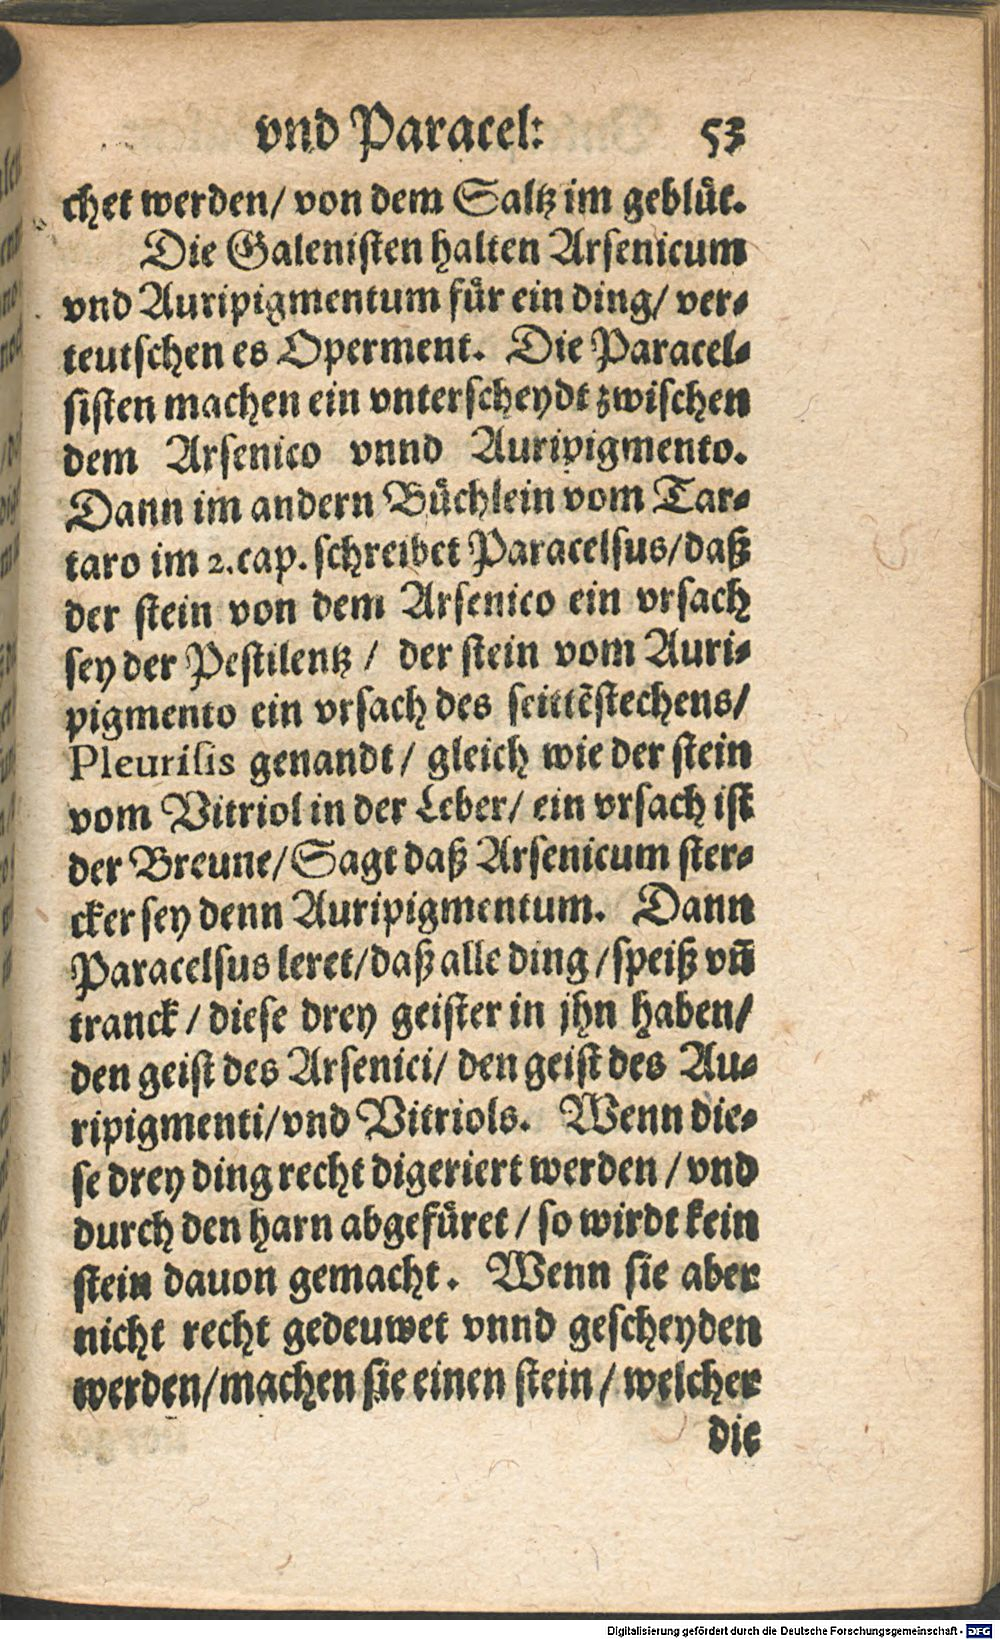 vnd Paracel: 53
chet werden/ von dem Saltz im geblüt.
Die Galenisten halten Arsenicum
vnd Auripigmentum für ein ding/ ver-
teutschen es Operment. Die Paracel-
sisten machen ein vnterscheydt zwischen
dem Arsenico vnnd Auripigmento.
Dann im andern Büchlein vom Tar-
taro im 2. cap. schreibet Paracelsus/ daß
der stein von dem Arsenico ein vrsach
sey der Pestilentz / der stein vom Auri-
pigmento ein vrsach des seittẽstechens/
Pleurisis genandt/ gleich wie der stein
vom Vitriol in der Leber/ ein vrsach ist
der Breune/ Sagt daß Arsenicum ster-
cker sey denn Auripigmentum. Dann
Paracelsus leret/ daß alle ding/ speiß vñ
tranck/ diese drey geister in jhn haben/
den geist des Arsenici/ den geist des Au-
ripigmenti/ vnd Vitriols. Wenn die-
se drey ding recht digeriert werden/ vnd
durch den harn abgefüret/ so wirdt kein
stein dauon gemacht. Wenn sie aber
nicht recht gedeuwet vnnd gescheyden
werden/ machen sie einen stein/ welcher
die
Digitalisierung gefördert durch die Deutsche Forschungsgemeinschaft - DFG